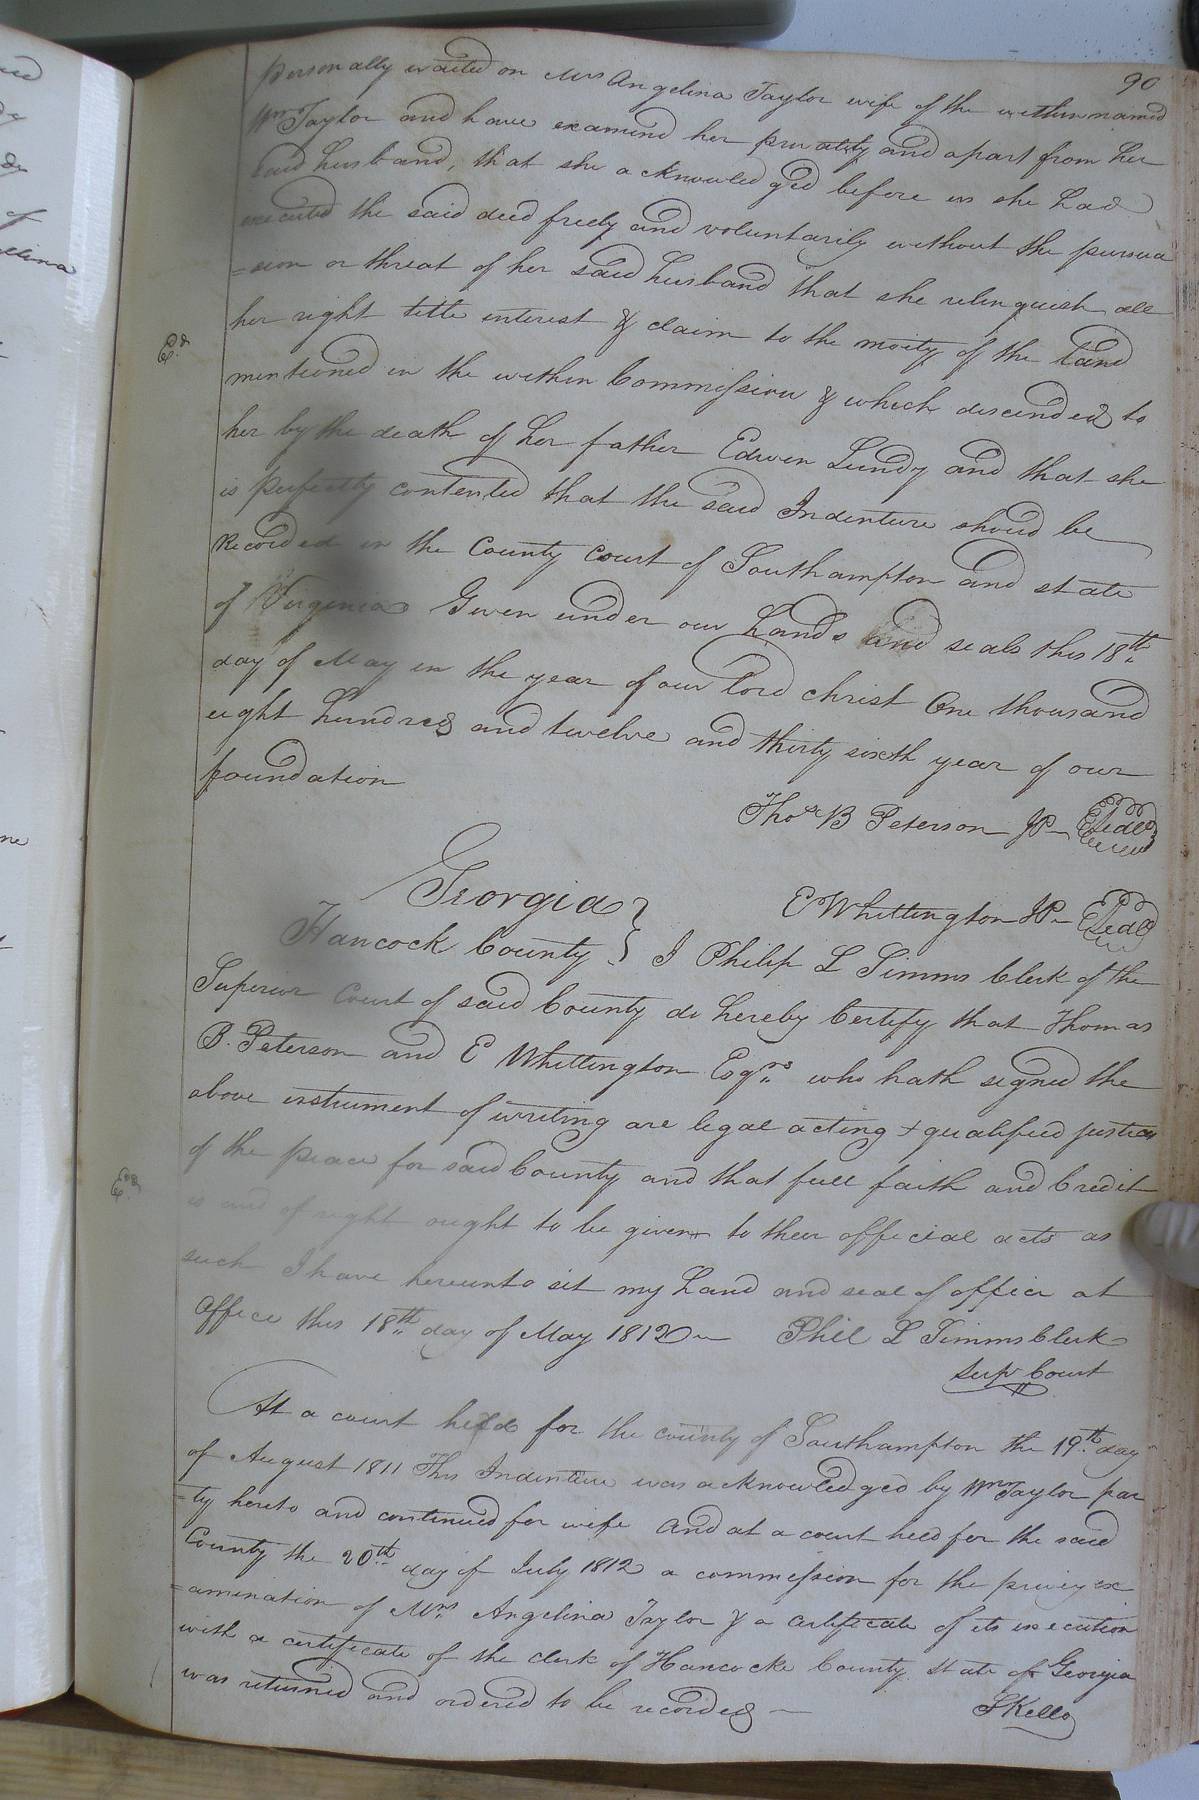 90
personally waited on Mrs Angelina Taylor wife of the within named
Wm Taylor and have examined her privately and apart from her
said husband, that she acknowledged before us she had
executed the said deed freely and voluntarily without the persua
=sion or threat of her said husband that she relinquish all
her right title interest & claim to the moity of the land
Ed
mentioned in the within Commission & which descended to
her by the death of her father Edwin Lundy and that she
is perfectly contented that the said Indenture should be
Recorded in the County Court of Southampton and state
of Virginia Given under our hands and seals this 18th
day of May in the year of our lord christ One thousand
eight hundred and twelve and thirty sixth year of our
foundation
Thos B Peterson JP Seal
E Whittington JP Seal
Georgia }
Hancock County } I Philip L Simms Clerk of the
Superior Court of said County do hereby Certify that Thomas
B. Peterson and E Whittington Esqrs who hath signed the
above instrument of writing are legal acting + qualified justices
of the peace for said County and that full faith and Credit
is and of right ought to be given to their official acts as
such I have hereunto set my hand and seal of office at
Office this 18th day of May 1812 Phil L Simms Clerk
Supr Court
At a court held for the county of Southampton the 19th day
of August 1811 This Indenture was acknowledged by Wm Taylor par
=ty hereto and continued for wife And at a court held for the said
County the 20th day of July 1812 a commission for the privy ex
=amination of Mrs Angelina Taylor & a certificate of its execution
with a certificate of the clerk of Hancocke County State of Georgia
was returned and ordered to be recorded
S Kello